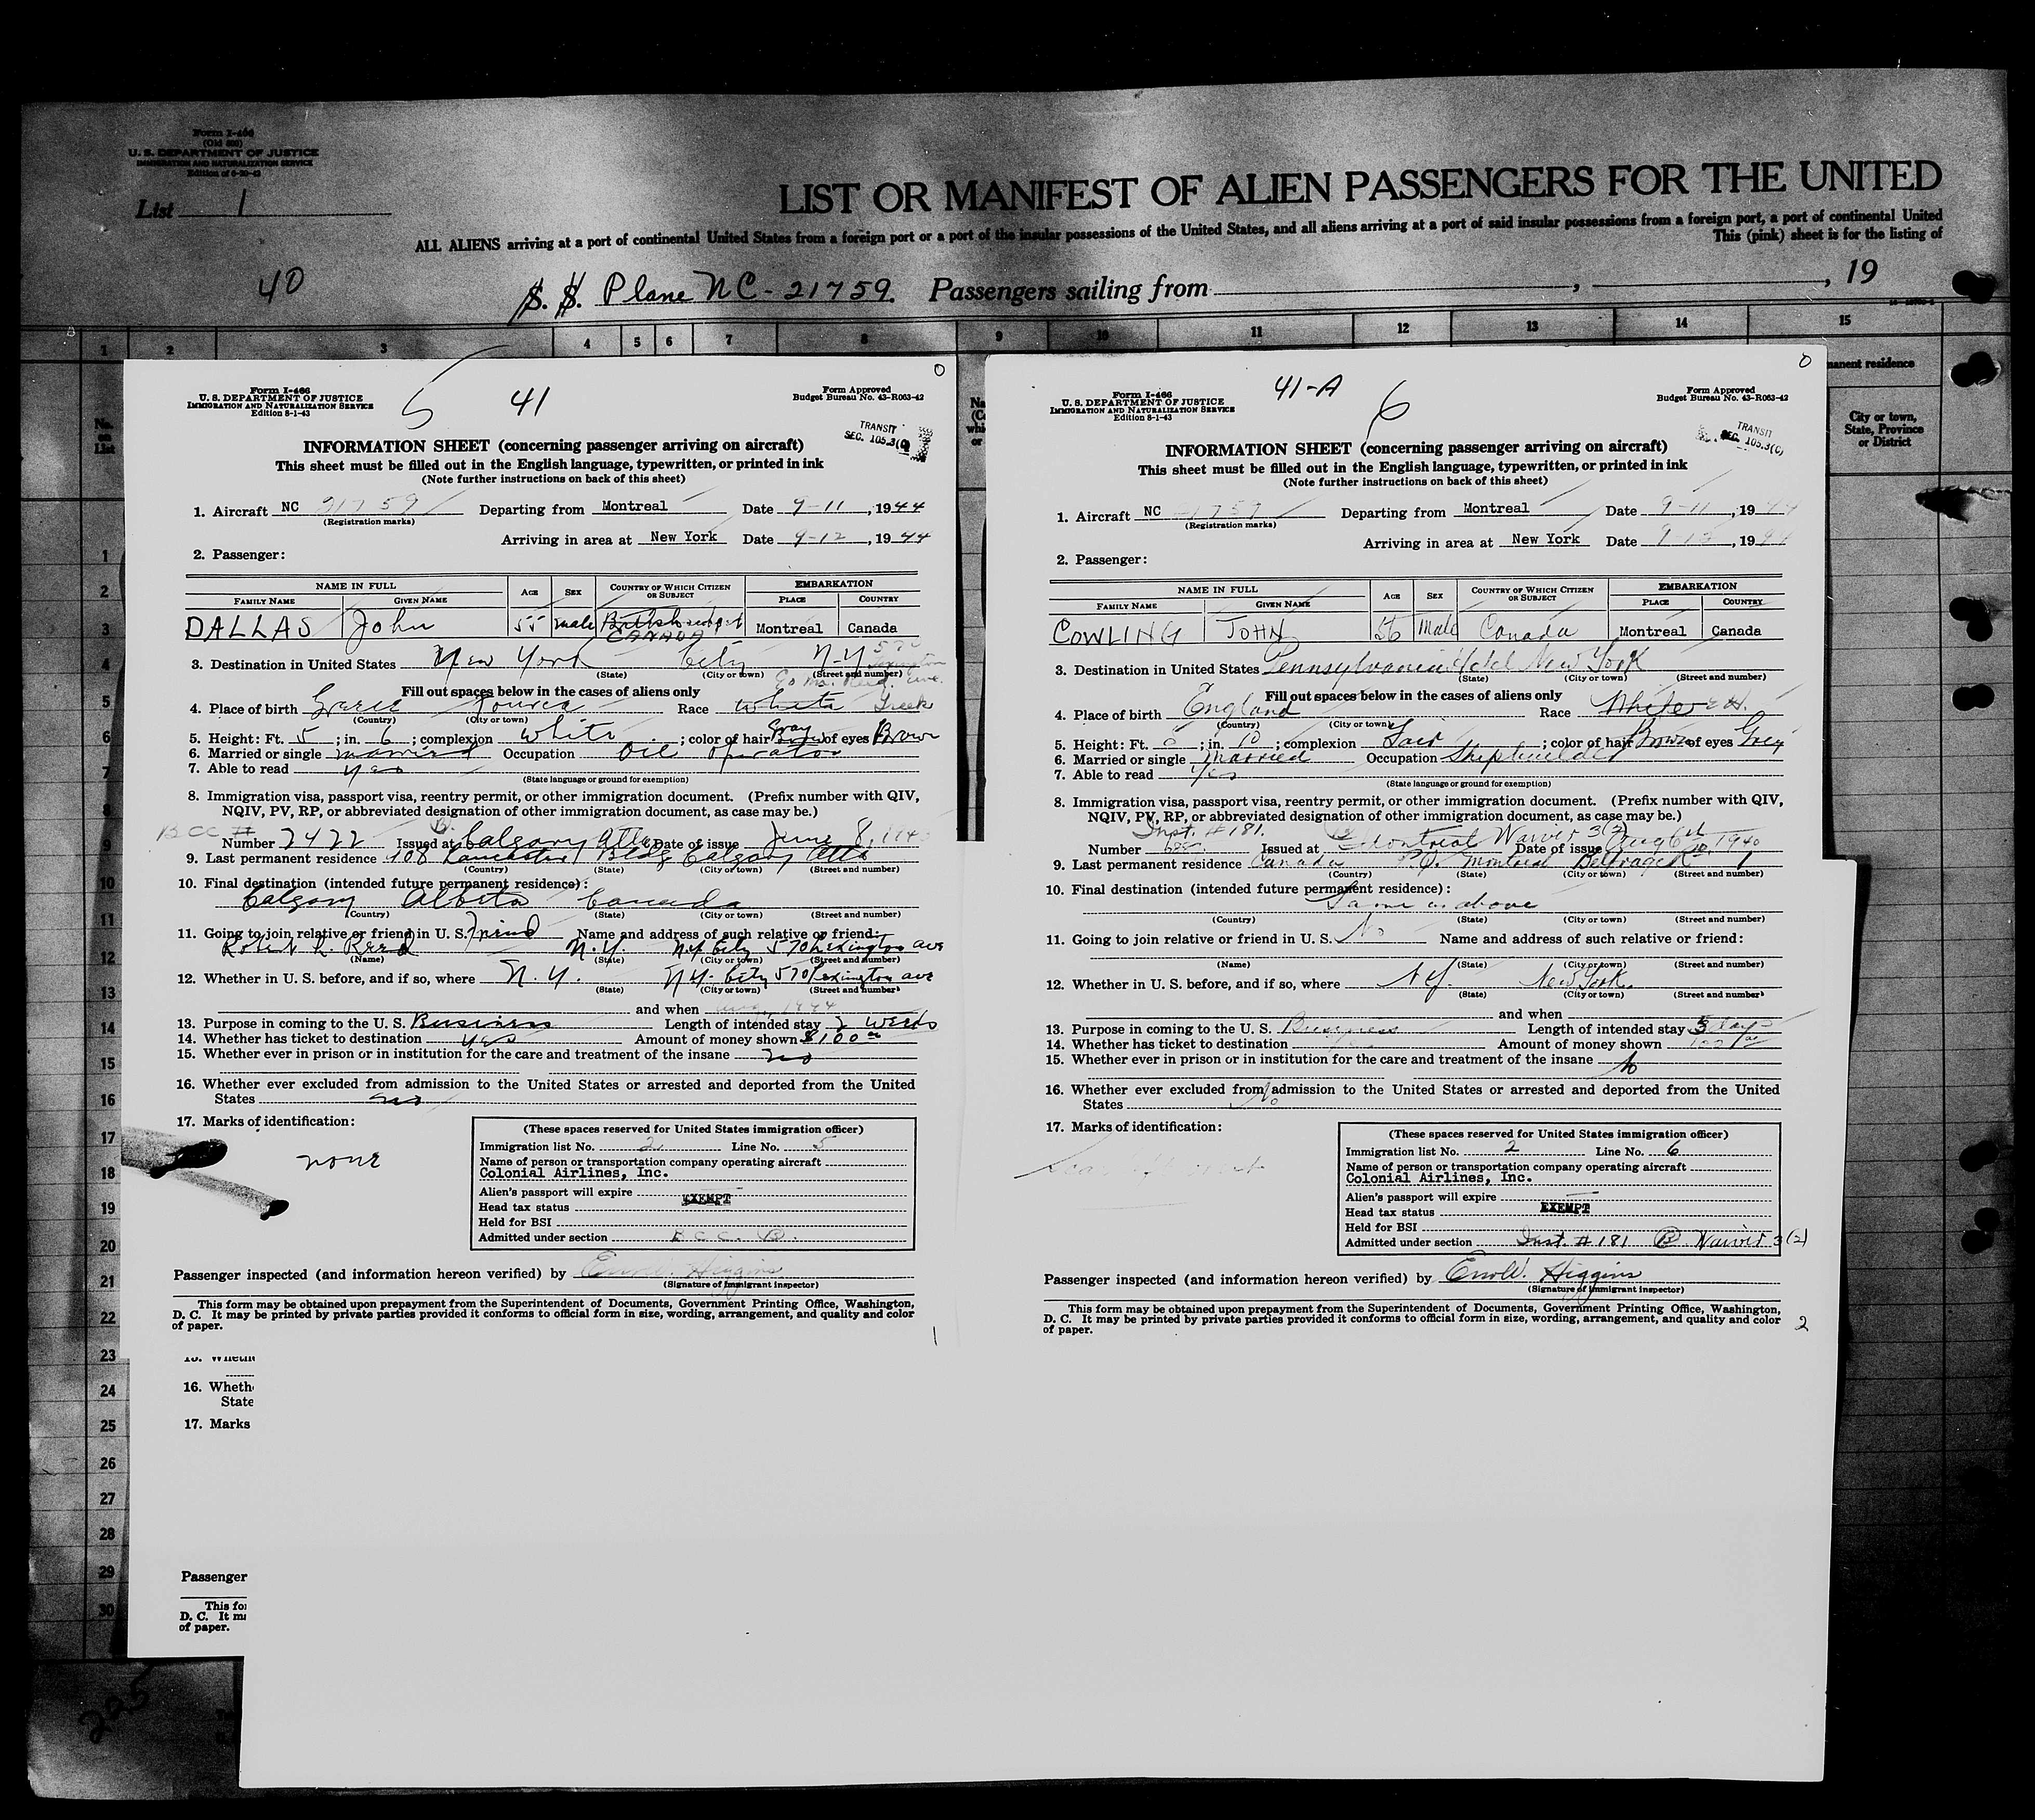 Form I-466
(Old 466)
U. S. DEPARTMENT OF JUSTICE
IMMIGRATION AND NATURALIZATION SERVICE
List 1
LIST OR MANIFEST OF ALIEN PASSENGERS FOR THE UNITED
ALL ALIENS arriving at a port of continental United States from a foreign port or a port of the insular possessions of the United States, and all aliens arriving at a port of said insular possessions from a foreign port, a port of continental United
This (pink) sheet is for the listing of
40
S. S. Plane NC-21759. Passengers sailing from , , 19
1 2 3 4 5 6 7 8 9 10 11 12 13 14 15
manent residence
No. on List
City or town, State, Province or District
Form I-466
U. S. DEPARTMENT OF JUSTICE
IMMIGRATION AND NATURALIZATION SERVICE
Edition 8-1-43
5 41
Form Approved
Budget Bureau No. 43-R063-42
TRANSIT
SEC. 105.3(C)
INFORMATION SHEET (concerning passenger arriving on aircraft)
This sheet must be filled out in the English language, typewritten, or printed in ink
(Note further instructions on back of this sheet)
1. Aircraft NC 21759 Departing from Montreal Date 9-11, 1944
(Registration marks)
Arriving in area at New York Date 9-12, 1944
2. Passenger:
NAME IN FULL AGE SEX COUNTRY OF WHICH CITIZEN OR SUBJECT EMBARKATION
FAMILY NAME GIVEN NAME PLACE COUNTRY
DALLAS John 55 male British subject CANADA Montreal Canada
3. Destination in United States New York City N.Y 570 Lexington
(State) (City or town) (Street and number)
Fill out spaces below in the cases of aliens only
4. Place of birth Greece Race White Greek
(Country) (City or town)
5. Height: Ft. 5; in. 6; complexion white; color of hair Gray of eyes Brown
6. Married or single married Occupation Oil operator
7. Able to read yes
(State language or ground for exemption)
8. Immigration visa, passport visa, reentry permit, or other immigration document. (Prefix number with QIV,
NQIV, PV, RP, or abbreviated designation of other immigration document, as case may be.)
BCC #
Number 2422 Issued at Calgary Alta Date of issue June 8,
9. Last permanent residence 108 Lancaster Bldg Calgary Alta
(Country) (State) (City or town) (Street and number)
10. Final destination (intended future permanent residence):
Calgary Alberta Canada
(Country) (State) (City or town) (Street and number)
11. Going to join relative or friend in U. S. Friend Name and address of such relative or friend:
Robert R. Reed N.Y. N.Y City 570 Lexington ave
(Name) (State) (City or town) (Street and number)
12. Whether in U. S. before, and if so, where N.Y. N.Y. City 570 Lexington ave
(State) (City or town) (Street and number)
and when 1944
13. Purpose in coming to the U. S. Business Length of intended stay 2 weeks
14. Whether has ticket to destination yes Amount of money shown $100.00
15. Whether ever in prison or in institution for the care and treatment of the insane no
16. Whether ever excluded from admission to the United States or arrested and deported from the United
States no
17. Marks of identification:
none
(These spaces reserved for United States immigration officer)
Immigration list No. 2 Line No. 5
Name of person or transportation company operating aircraft
Colonial Airlines, Inc.
Alien's passport will expire
Head tax status EXEMPT
Held for BSI
Admitted under section B.C.C. B.
Passenger inspected (and information hereon verified) by Enroll. Higgins
(Signature of immigrant inspector)
This form may be obtained upon prepayment from the Superintendent of Documents, Government Printing Office, Washington,
D. C. It may be printed by private parties provided it conforms to official form in size, wording, arrangement, and quality and color
of paper.
1
Form I-466
U. S. DEPARTMENT OF JUSTICE
IMMIGRATION AND NATURALIZATION SERVICE
Edition 8-1-43
41-A 6
Form Approved
Budget Bureau No. 43-R063-42
TRANSIT
SEC. 105.3(C)
INFORMATION SHEET (concerning passenger arriving on aircraft)
This sheet must be filled out in the English language, typewritten, or printed in ink
(Note further instructions on back of this sheet)
1. Aircraft NC 1759 Departing from Montreal Date 9-11, 1944
(Registration marks)
Arriving in area at New York Date 9-12, 1944
2. Passenger:
NAME IN FULL AGE SEX COUNTRY OF WHICH CITIZEN OR SUBJECT EMBARKATION
FAMILY NAME GIVEN NAME PLACE COUNTRY
COWLING JOHN 56 Male Canada Montreal Canada
3. Destination in United States Pennsylvania Hotel New York
(State) (City or town) (Street and number)
Fill out spaces below in the cases of aliens only
4. Place of birth England Race White
(Country) (City or town)
5. Height: Ft. ; in. 10; complexion Fair; color of hair Brown of eyes Grey
6. Married or single Married Occupation Shipbuilder
7. Able to read Yes
(State language or ground for exemption)
8. Immigration visa, passport visa, reentry permit, or other immigration document. (Prefix number with QIV,
NQIV, PV, RP, or abbreviated designation of other immigration document, as case may be.)
Inst. #181. Waiver 3(2)
Number Issued at Montreal Date of issue Aug 6th 1940
9. Last permanent residence Canada P.Q. Montreal
(Country) (State) (City or town) (Street and number)
10. Final destination (intended future permanent residence):
Same as above
(Country) (State) (City or town) (Street and number)
11. Going to join relative or friend in U. S. No Name and address of such relative or friend:
(Name) (State) (City or town) (Street and number)
12. Whether in U. S. before, and if so, where N.Y. New York
(State) (City or town) (Street and number)
and when
13. Purpose in coming to the U. S. Business Length of intended stay 3 days
14. Whether has ticket to destination Amount of money shown 100
15. Whether ever in prison or in institution for the care and treatment of the insane No
16. Whether ever excluded from admission to the United States or arrested and deported from the United
States No
17. Marks of identification:
(These spaces reserved for United States immigration officer)
Immigration list No. 2 Line No. 6
Name of person or transportation company operating aircraft
Colonial Airlines, Inc.
Alien's passport will expire
Head tax status EXEMPT
Held for BSI
Admitted under section Inst. #181 B Waiver 3(2)
Passenger inspected (and information hereon verified) by Enroll. Higgins
(Signature of immigrant inspector)
This form may be obtained upon prepayment from the Superintendent of Documents, Government Printing Office, Washington,
D. C. It may be printed by private parties provided it conforms to official form in size, wording, arrangement, and quality and color
of paper.
2
16. Wheth
State
17. Marks
Passenger
This for
D. C. It m
of paper.
225